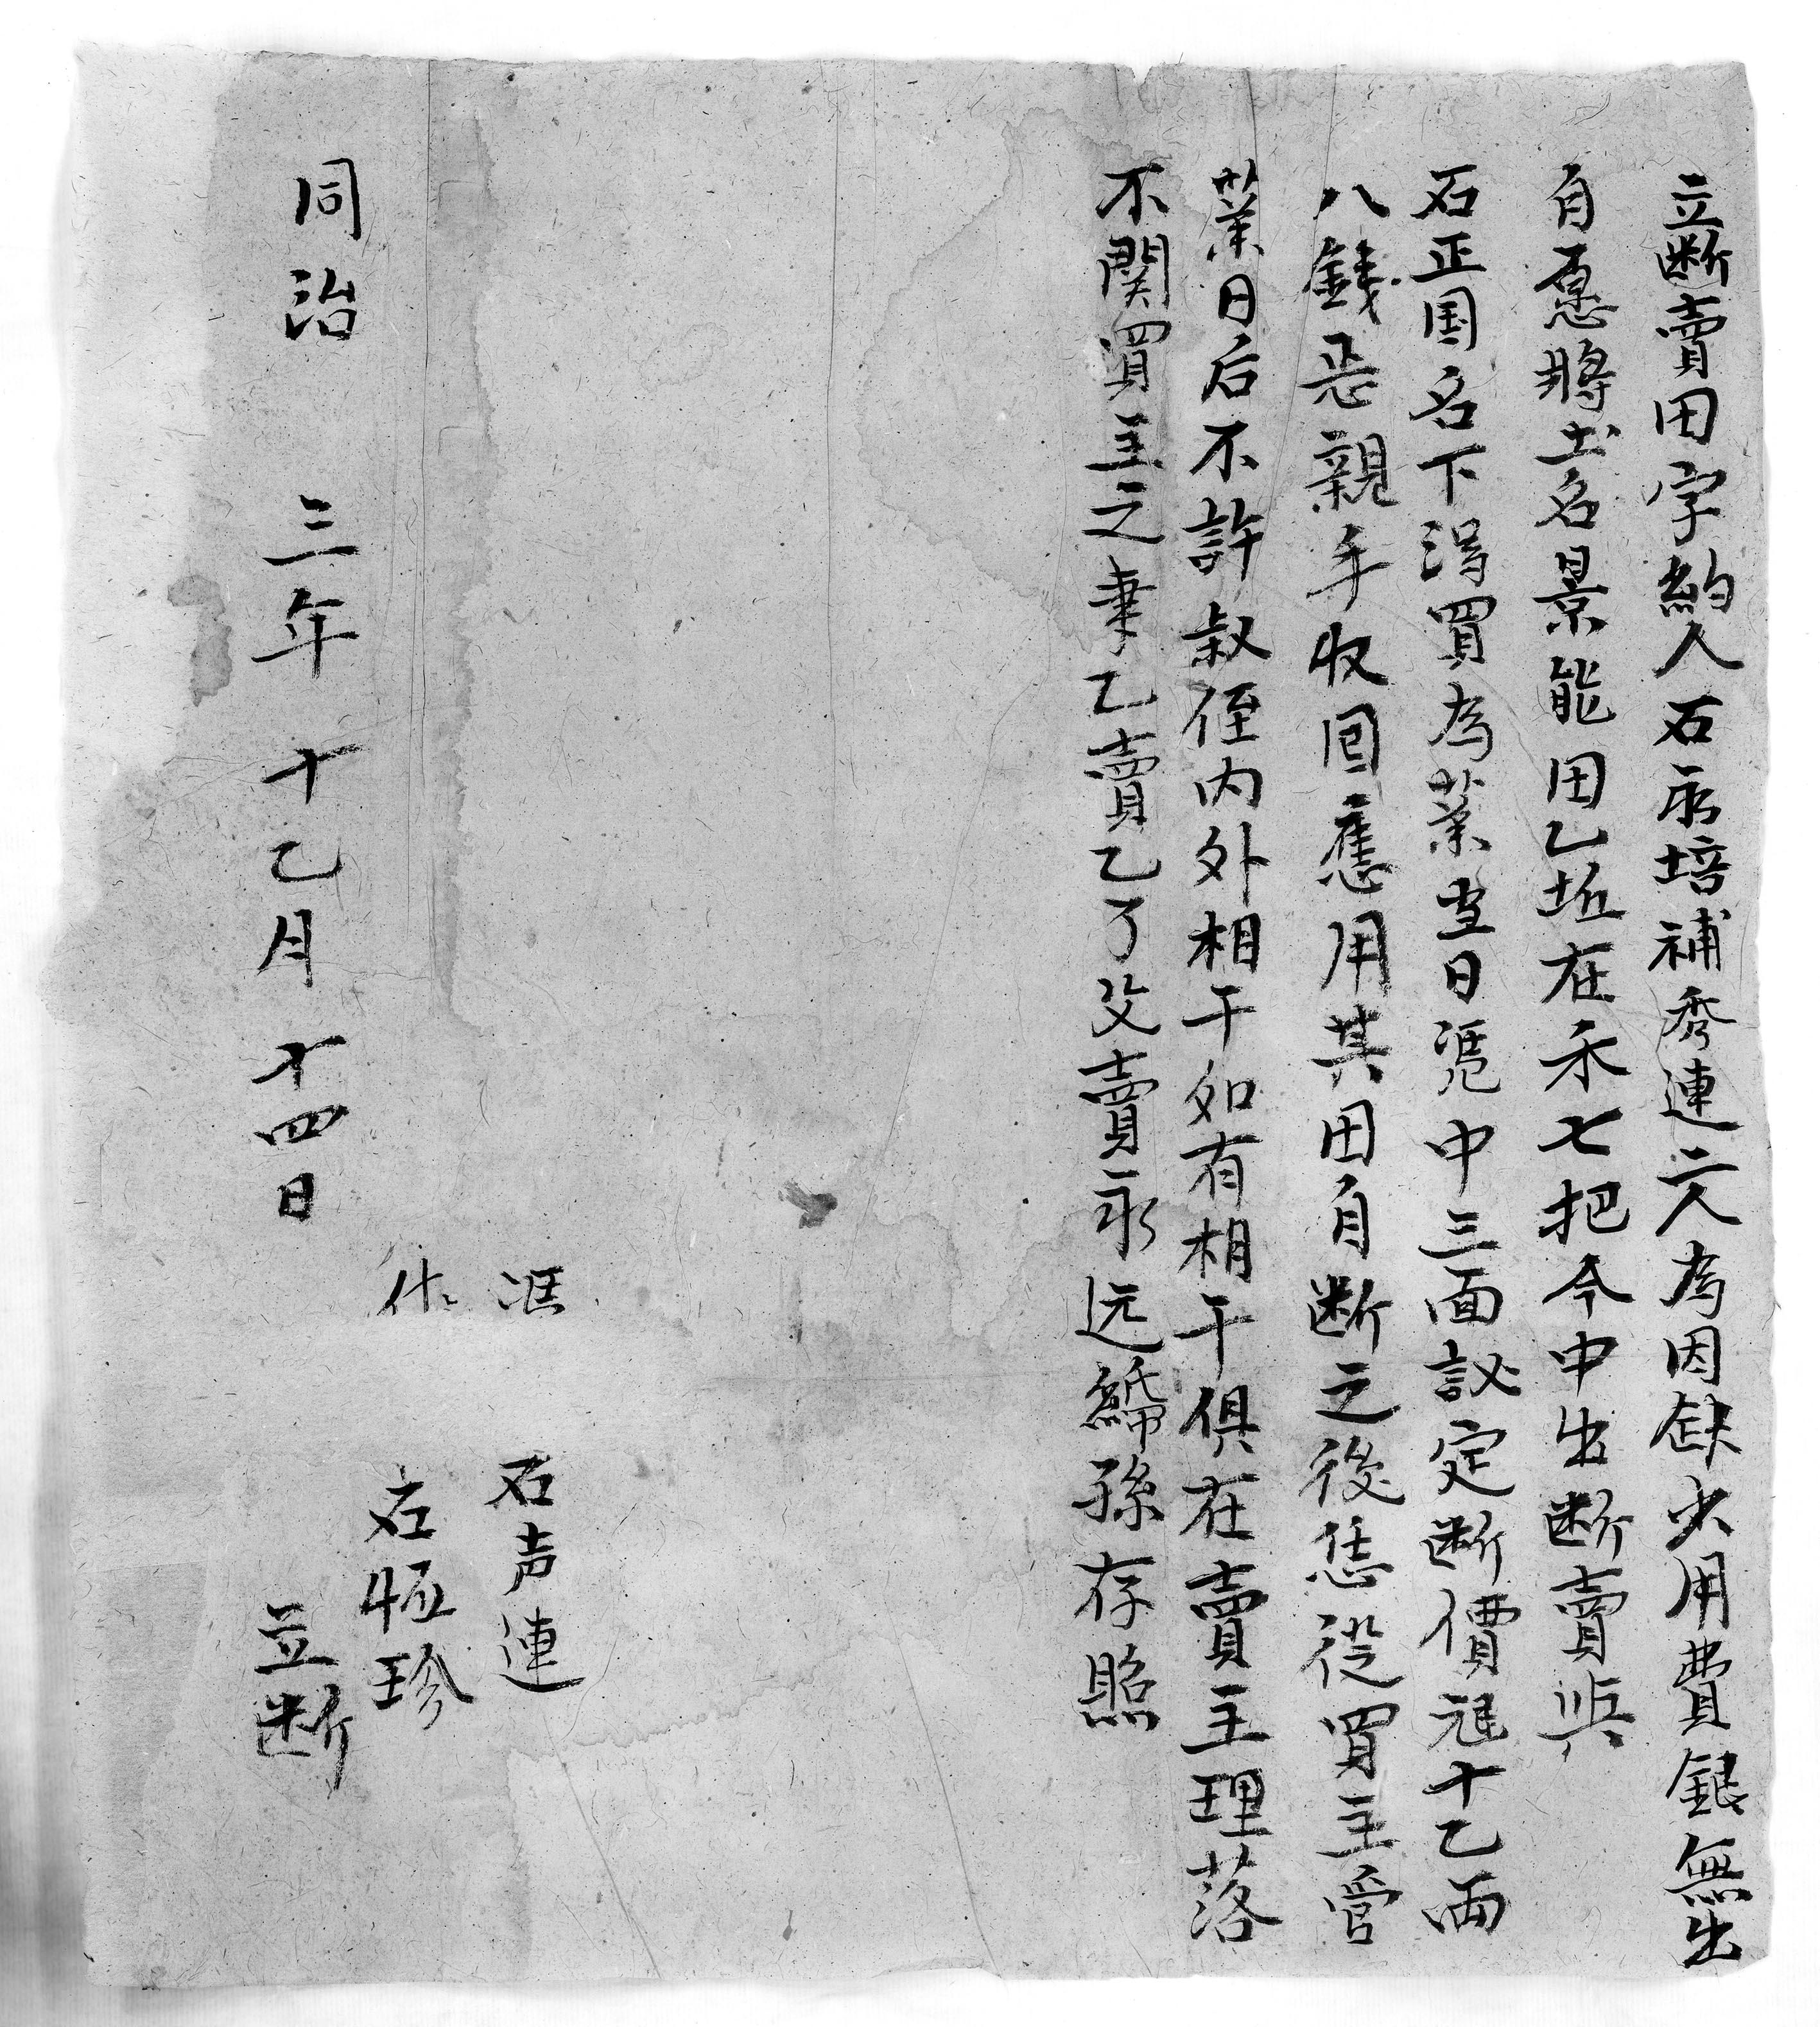 立断賣田字約人石永培補秀連二人為因缺少用費銀無出
自愿將土名景能田乙坵在禾七把今申出断賣與
石正国名下淂買為業當日凭中三面議定断價冠十乙両
八錢悉親手收囬應用其田自断之後恁從買主管
業日后不許叔侄内外相干如有相干俱在賣主理落
不関買主之事乙賣乙了父賣永远孫存照
凭 石声連
代 石恒珍
同治三年十乙月十四日 立断